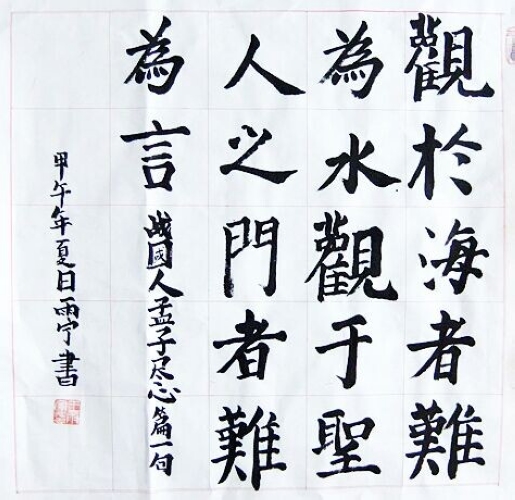 觀於海者難
為水觀于聖
人之門者難
為言战國人孟子尽心篇一句
甲午年夏日雨宁書